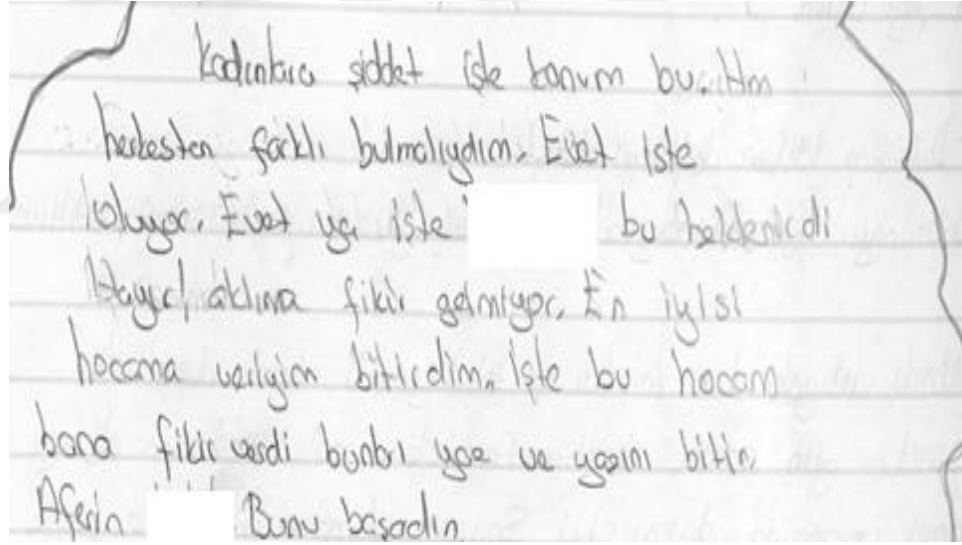 Kadınlara şiddet işte konum bu.
herkesten farklı bulmalıydım. Evet işte
oluyor. Evet ya işte bu
Hayır! aklıma fikir gelmiyor. En iyisi
hocama veriyim bitirdim. İşte bu hocam
bana fikir verdi bunları yaz ve yazını bitir.
Aferin Bunu başadın